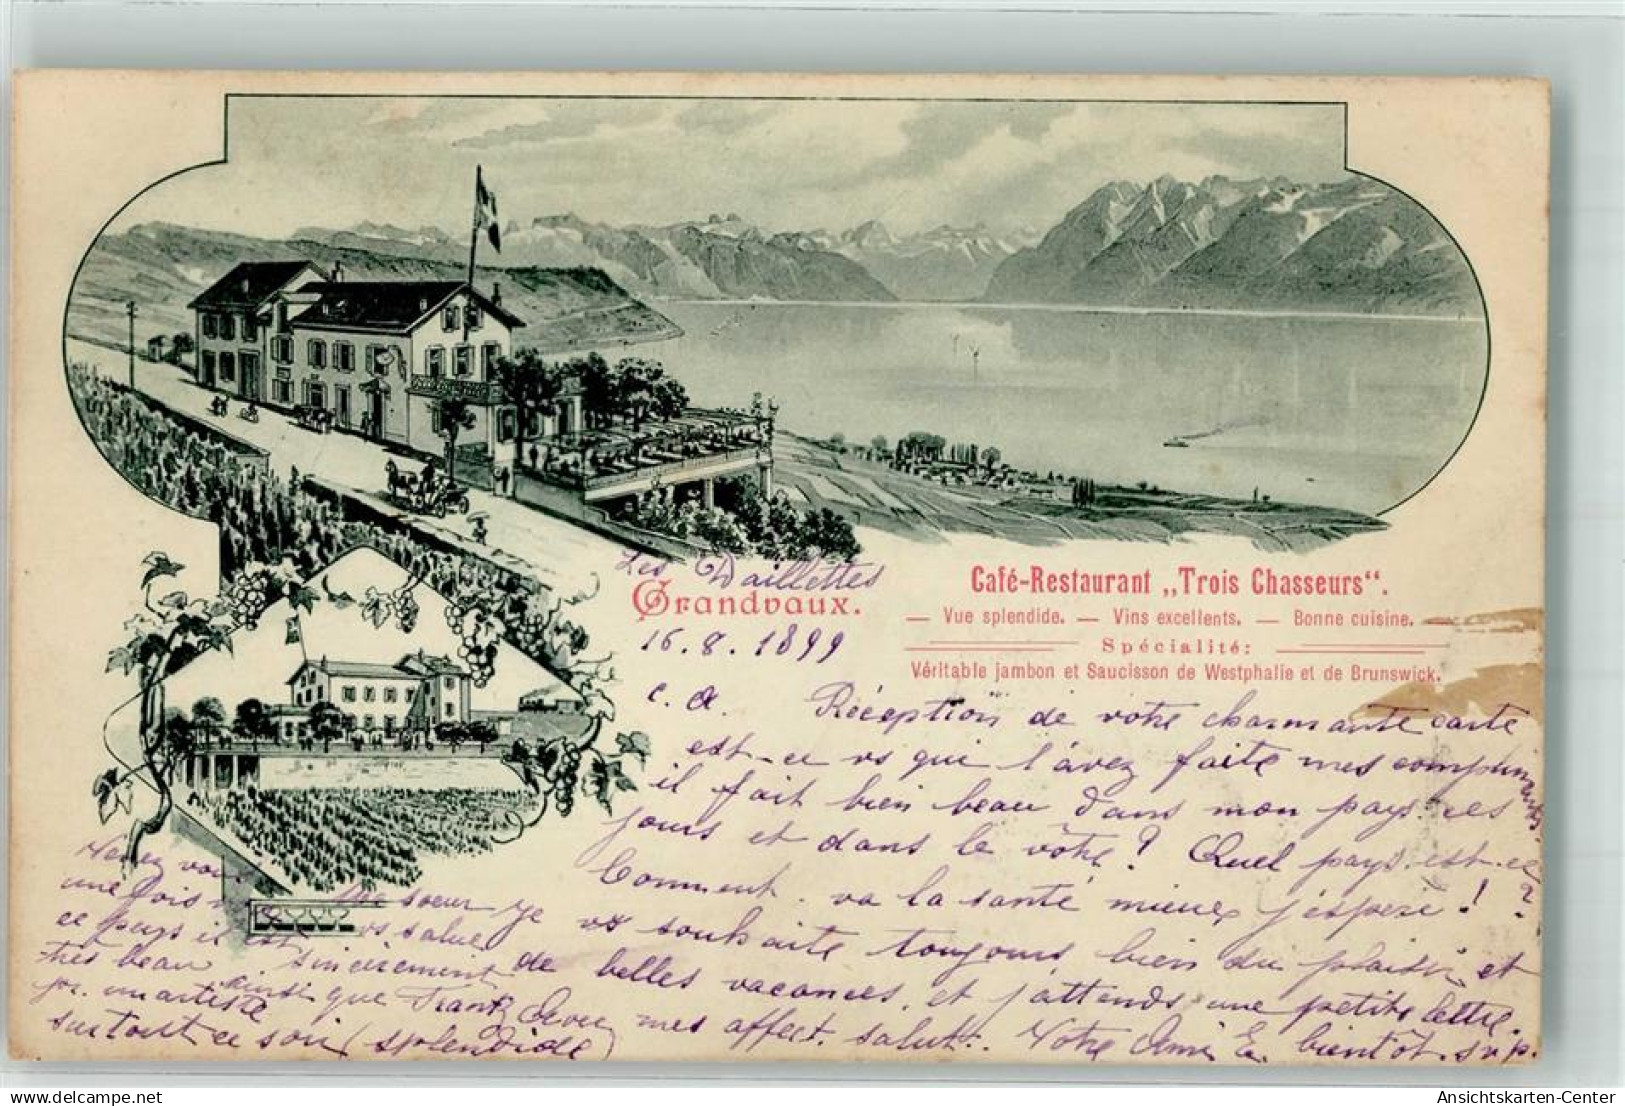 Les Daillettes
Grandvaux.
16. 8. 1899
Café-Restaurant „Trois Chasseurs“.
— Vue splendide. — Vins excellents. — Bonne cuisine. —
Spécialité:
Véritable jambon et Saucisson de Westphalie et de Brunswick.
Réception de votre charmante carte
est-ce vs qui l'avez faite mes compliments
il fait bien beau dans mon pays ces
jours et dans le vôtre? Quel pays est-ce
Comment va la santé mieux j'espère! ?
je vs souhaite toujours bien du plaisir et
de belles vacances, et j'attends une petite lettre.
mes affect. salut. Votre Ami E. bientôt s.v.p.
Venez vous
une fois
ce pays il est
très beau
pr. un artiste
surtout ce soir (splendide)
Ma soeur
vs salue
sincèrement
ainsi que Frantz
Ansichtskarten-Center